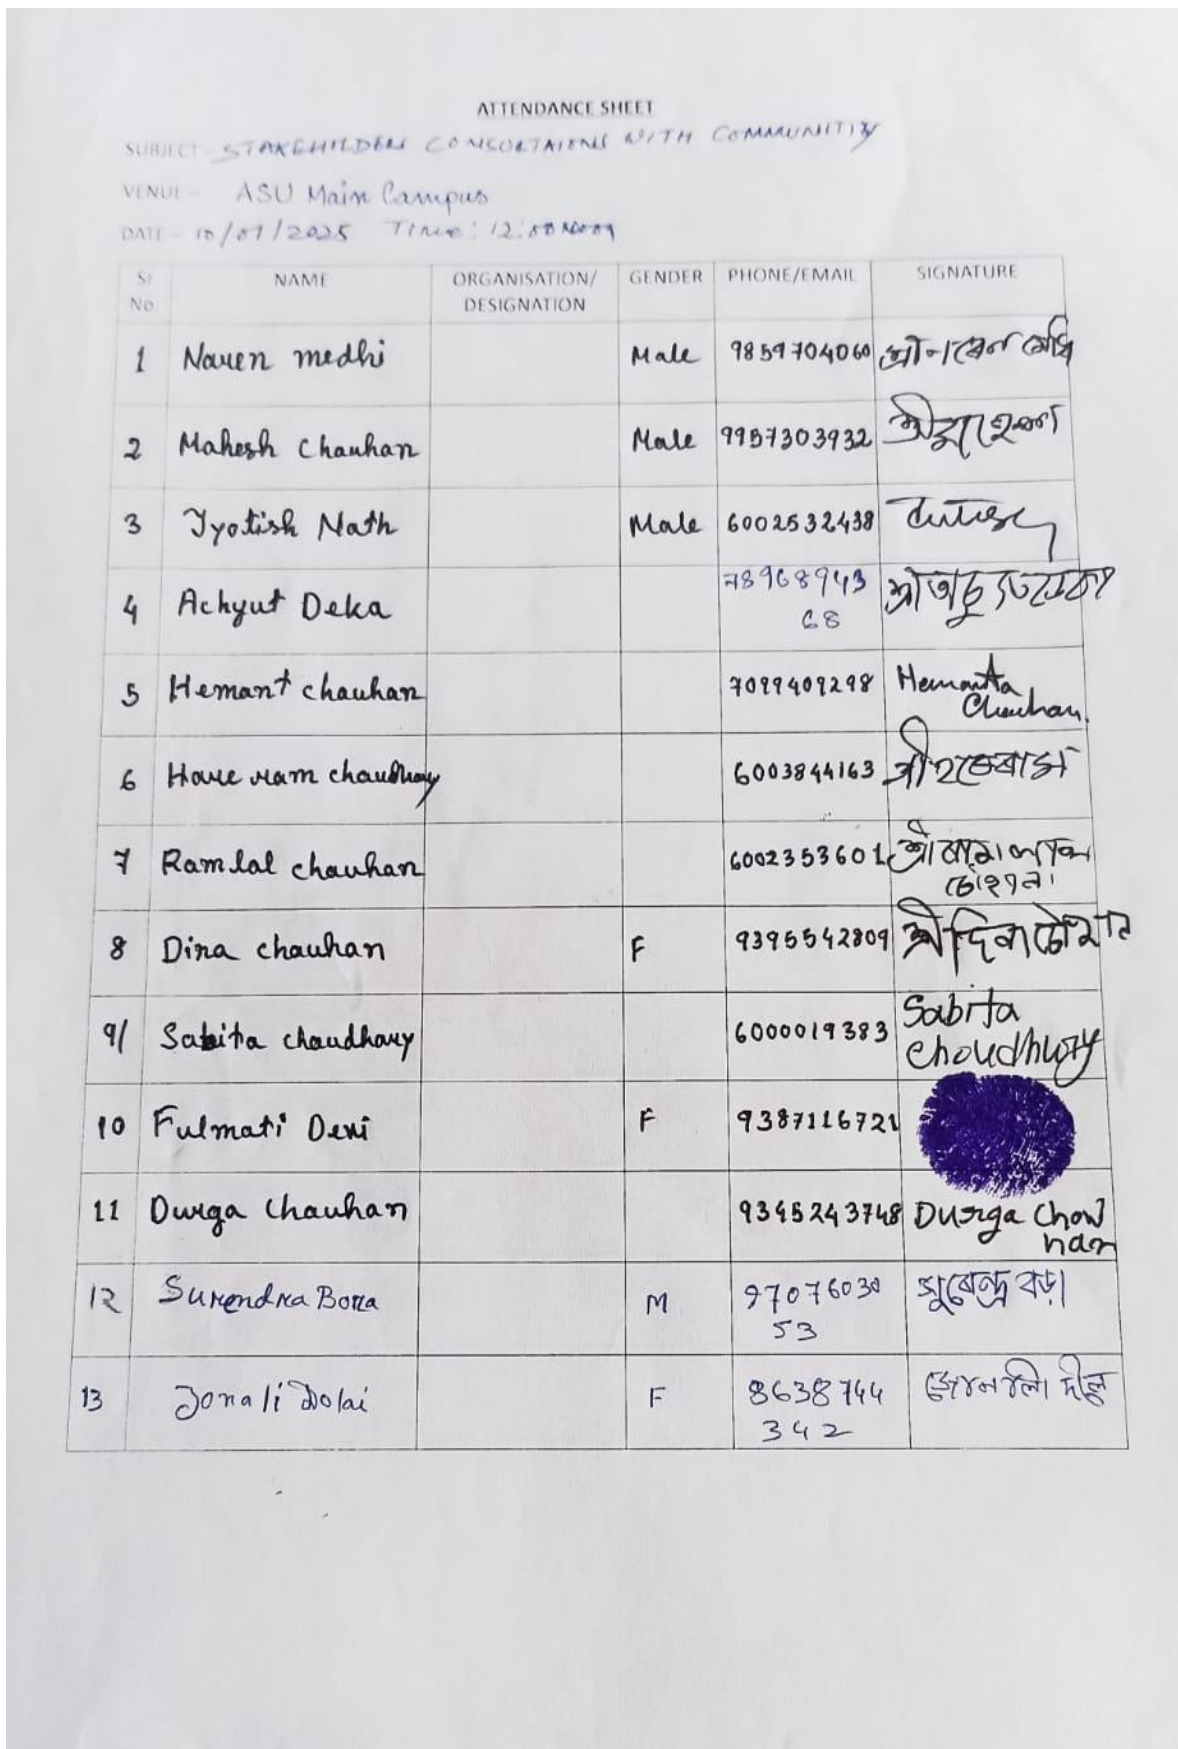 ATTENDANCE SHEET
SUBJECT - STAKEHILDER CONSULTAIONS WITH COMMUNITIY
VENUE - ASU Main Campus
DATE - 10/01/2025 Time: 12:00 Noon
Sr No NAME ORGANISATION/ DESIGNATION GENDER PHONE/EMAIL SIGNATURE
1 Naren medhi Male 9859704060 শ্ৰী নৰেন মেধি
2 Mahesh Chauhan Male 9957303932 শ্ৰী
3 Jyotish Nath Male 6002532438
4 Achyut Deka 7896894368 শ্ৰী অচ্যুত ডেকা
5 Hemant chauhan 7099409298 Hemanta Chauhan
6 Hare ram chaudhary 6003844163 শ্ৰী হৰেৰাম
7 Ramlal chauhan 6002353601 শ্ৰী
8 Dina chauhan F 9395542809 শ্ৰী দিনা চৌহান
9/ Sabita chaudhary 6000019383 Sabita Choudhury
10 Fulmati Devi F 9387116721
11 Durga Chauhan 9345243748 Durga Chowhan
12 Surendra Bora M 9707603053 সুৰেন্দ্ৰ বড়া
13 Jonali Dolai F 8638744342